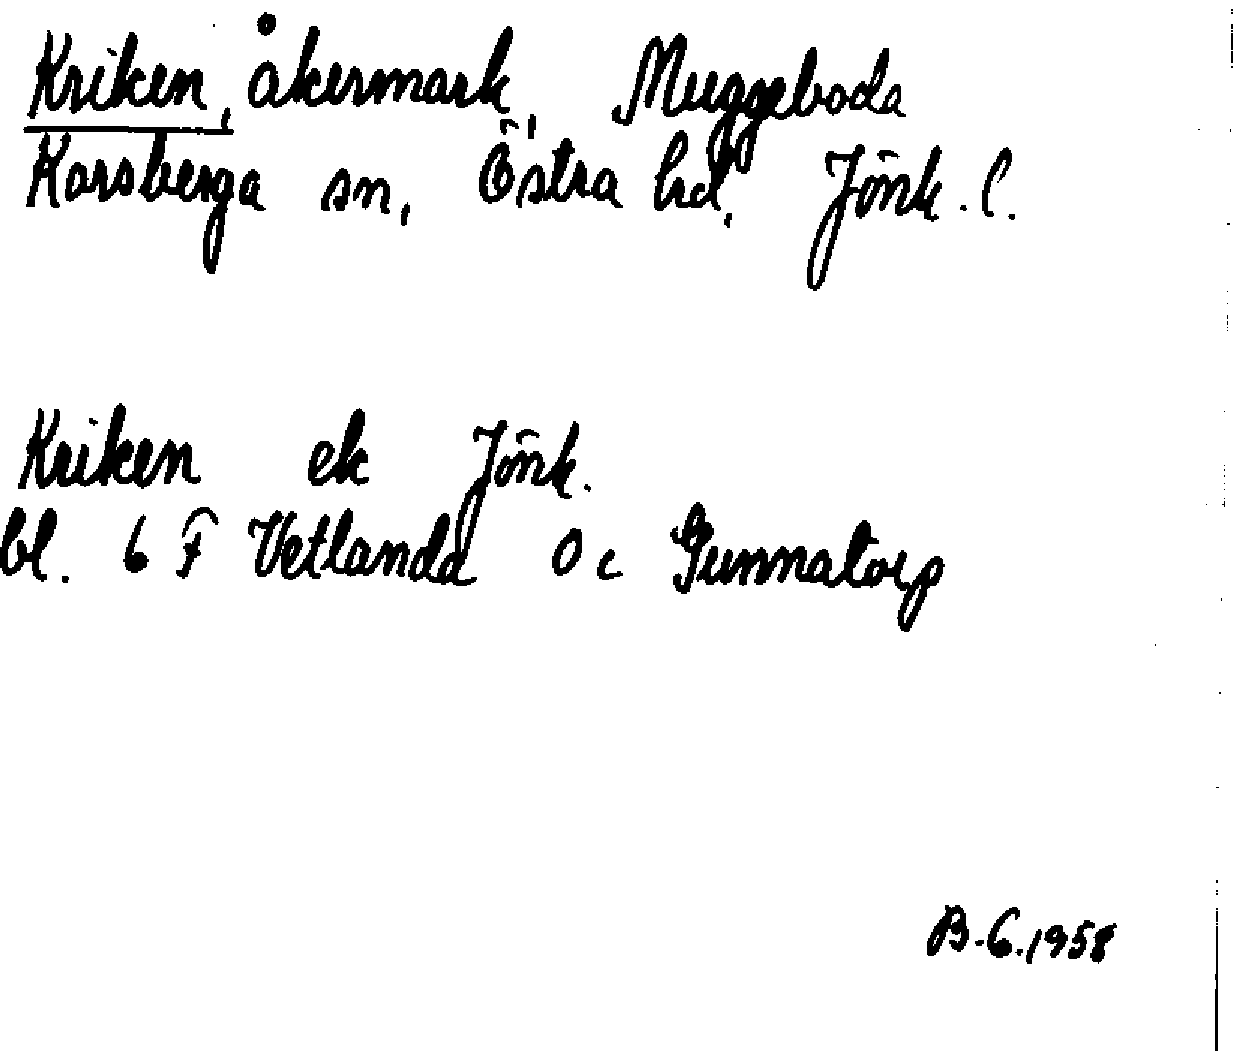 Kriken, åkermark, Muggeboda
Korsberga sn, Östra hd, Jönk. l.
Kriken ek Jönk.
bl. 6 F Vetlanda O c Gunnatorp
B-G.1958